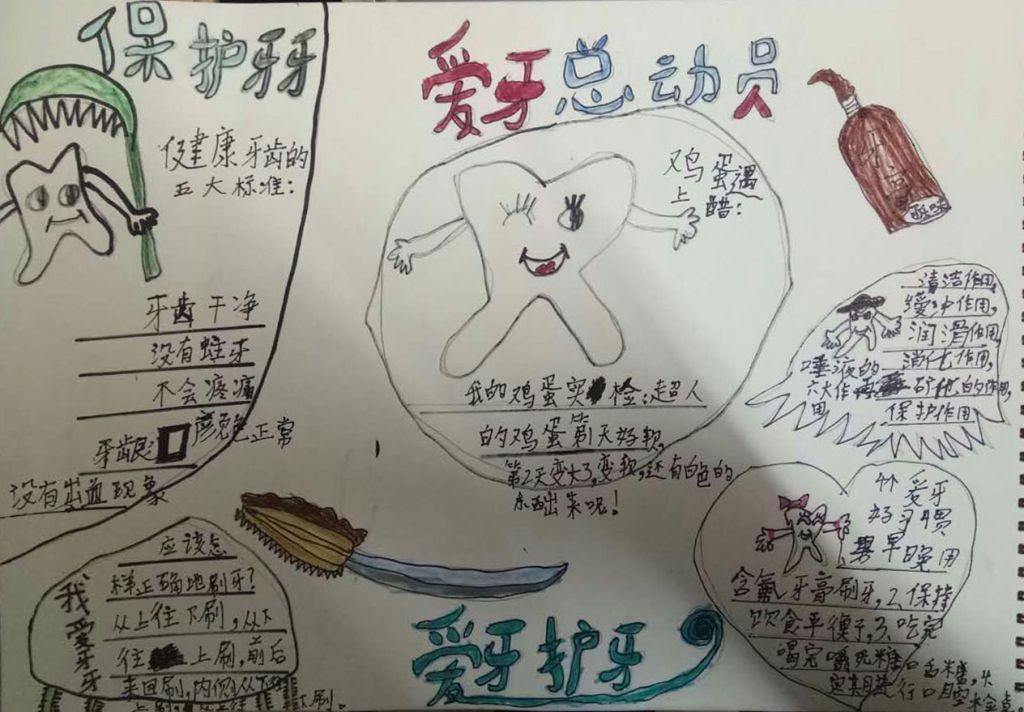 保护牙牙
健康牙齿的
五大标准:
牙齿干净
没有蛀牙
不会疼痛
牙龈颜色正常
没有出血现象
爱牙总动员
鸡蛋遇
上醋:
我的鸡蛋实检:超人
的鸡蛋第1天好软,
第2天变大了,变软,还有白色的
东西出来呢!
清洁作用,
缓冲作用,
润滑作用
消化作用,
唾液的
六大作用
保护作用
我爱牙牙
应该怎
样正确地刷牙?
从上往下刷,从下
往上刷,前后
来回刷,内侧从下
上刷,
下刷。
爱牙护牙
爱牙
好习惯
早晚用
含氟牙膏刷牙,2.保持
饮食平衡,3.吃完
喝完嚼无糖口香糖,4.
定期进行口腔检查。